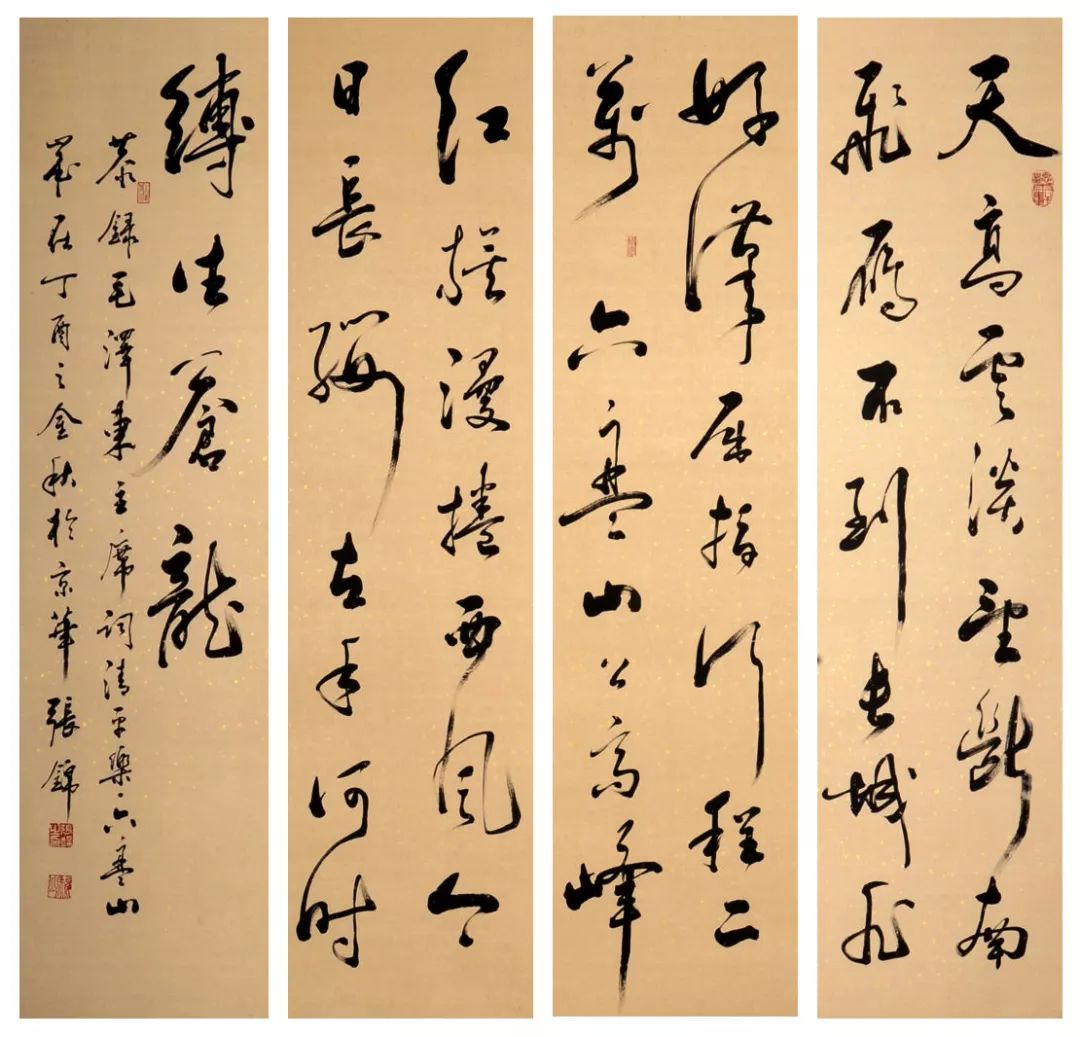 天高雲淡望斷南
飛雁不到長城非
好漢屈指行程二
萬六盤山上高峰
紅旗漫捲西風今
日長纓在手何时
縛住蒼龍
恭錄毛澤東主席詞清平樂六盤山
歲在丁酉之金秋於京華張錦